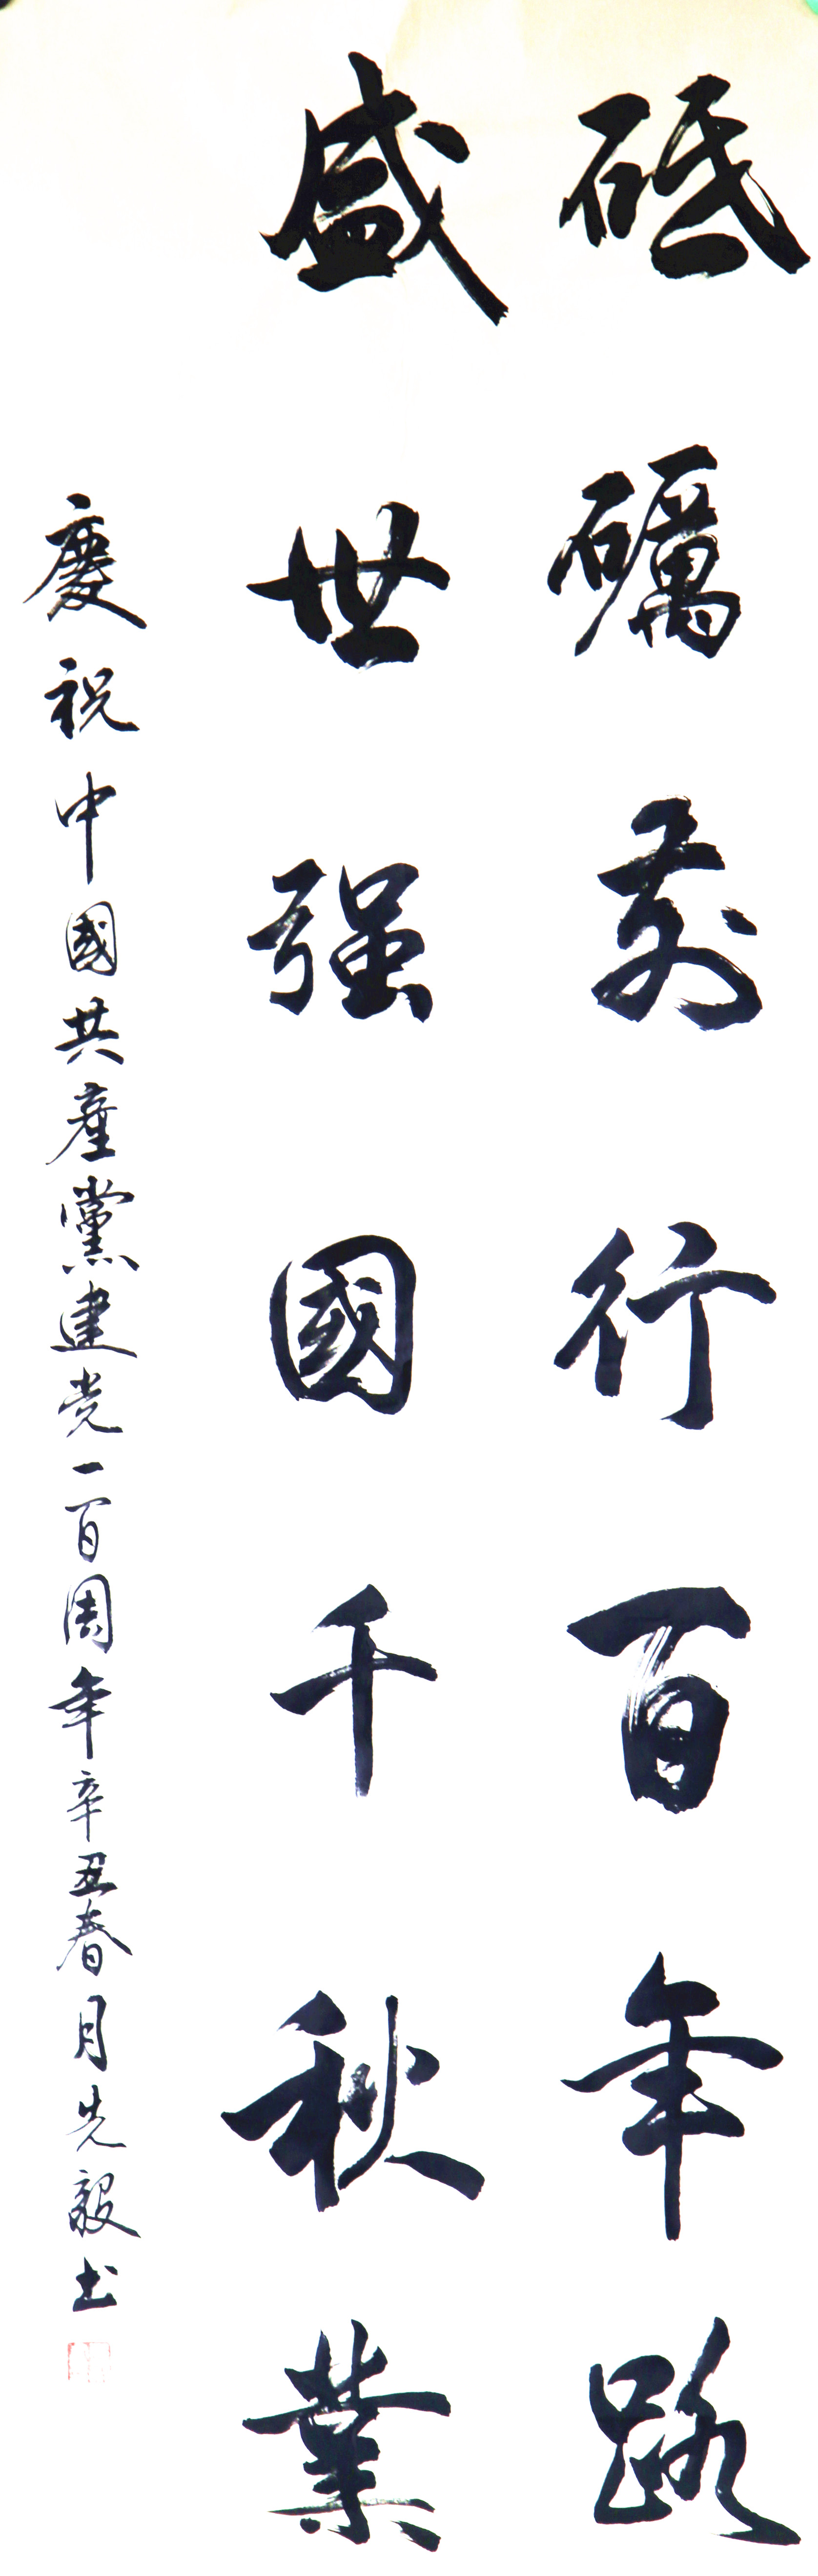 砥礪前行百年路
盛世强國千秋業
慶祝中國共產黨建党一百周年辛丑春月先毅书